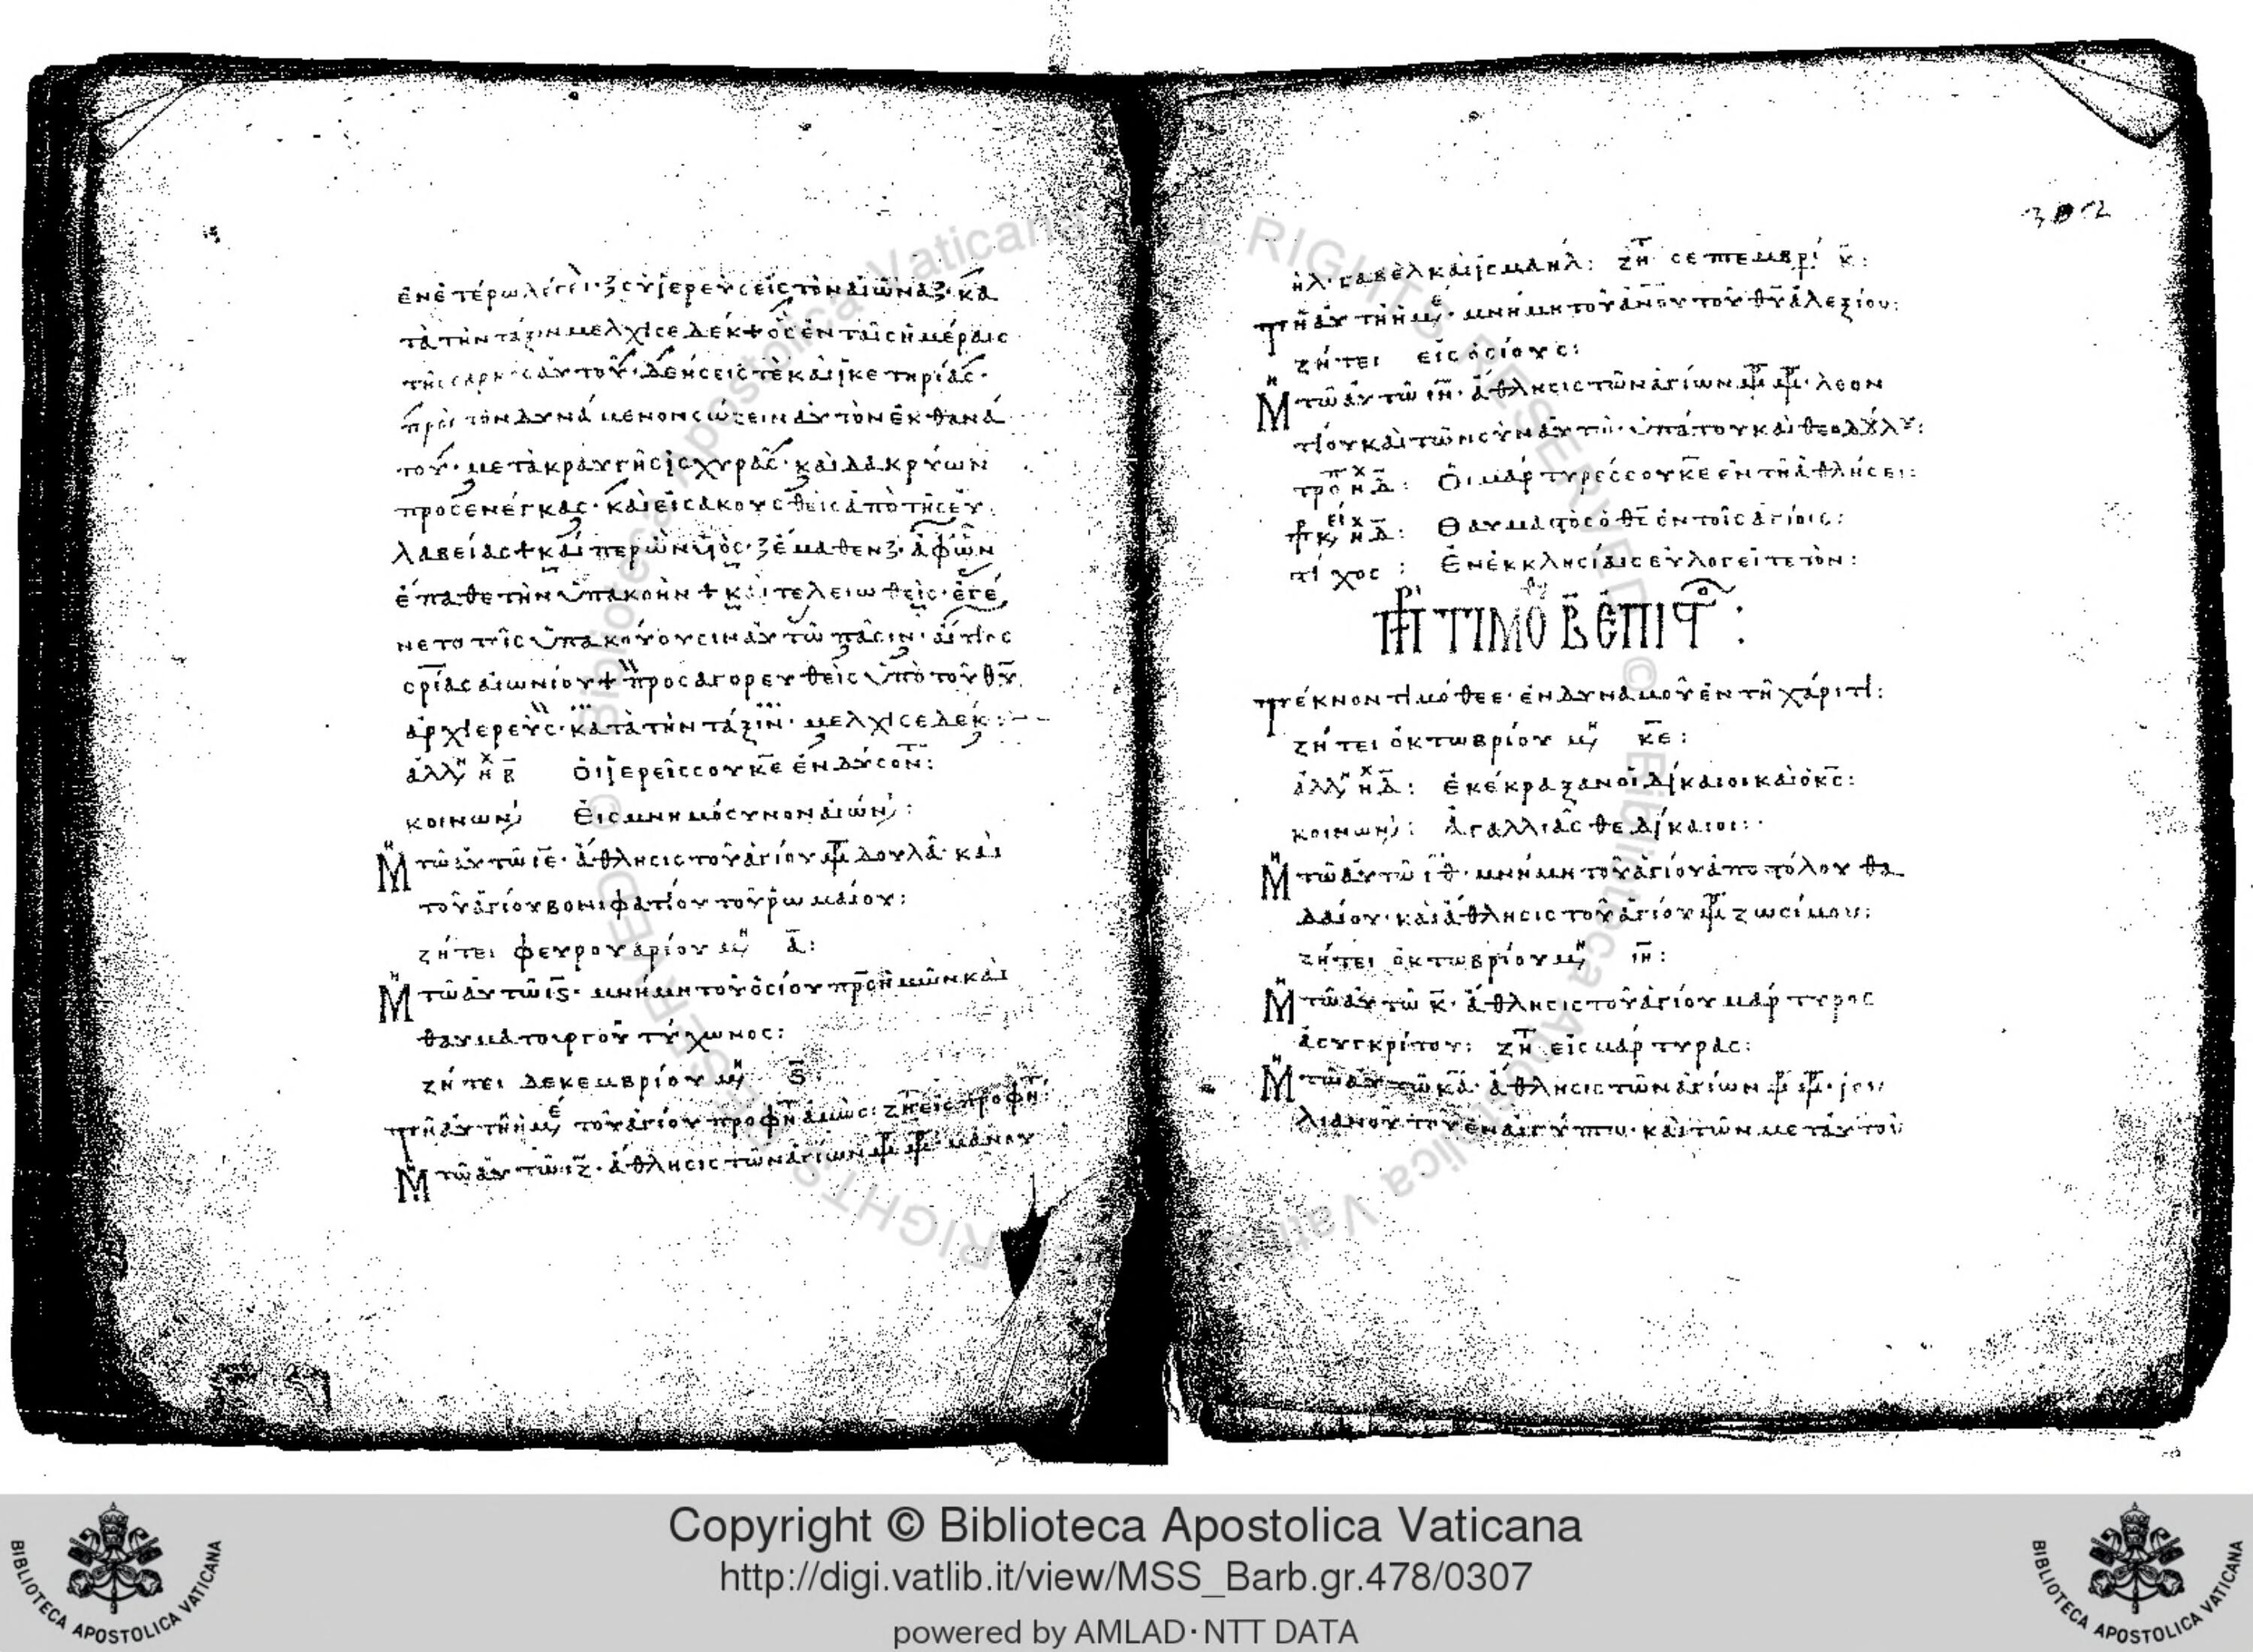 ἐν ἑτέρω λέγει· σὺ ἱερεὺς εἰς τὸν αἰῶνα· κα
τὰ τὴν τάξιν μελχισεδέκ + ὃς ἐν ταῖς ἡμέραις
τῆς σαρκὸς αὐτοῦ· δεήσεις τὲ καὶ ἱκετηρίας·
πρὸς τὸν δυνάμενον σώζειν αὐτὸν ἐκ θανά
του· μετὰ κραυγῆς ἰσχυρᾶς· καὶ δακρύων
προσενέγκας· καὶ εἰσακουσθεὶς ἀπὸ τῆς εὐ
λαβείας + καί περ ὢν υἱὸς· ἔμαθεν· ἀφ' ὧν
ἔπαθε τὴν ὑπακοὴν + καὶ τελειωθεὶς· ἐγέ
νετο τοῖς ὑπακούουσιν αὐτῶ πᾶσιν· αἴτιος
σρίας αἰωνίου + προσαγορευθεὶς ὑπὸ τοῦ θυ
ἀρχιερεὺς· κατὰ τὴν τάξιν· μελχισεδέκ :
ἀλλη ηχ β οἱ ἱερεῖς σου κε ἐνδύσον :
κοινων εἰς μνημόσυνον αἰών :
Μη τῶ αὐτῶ ιε· ἄθλησις τοῦ ἁγίου μρ δουλᾶ· καὶ
τοῦ ἁγίου βονιφατίου τοῦ ρωμαίου :
ζήτει φευρουαρίου μη α :
Μη τῶ αὐτῶ ις· μνήμη τοῦ ὁσίου πρς ἡμῶν καὶ
θαυματουργοῦ τύχωνος :
ζήτει δεκεμβρίου μη ς :
τῆ αὐτῆ ημε τοῦ ἁγίου προφη ἀμώς : ζητ εἰς προφητ :
Μη τῶ αὐτῶ ιζ· ἄθλησις τῶν ἁγίων μρ μρ μανου
302
ὴλ· σαβὲλ καὶ ἰσμαήλ : ζητ σεπτεμβρί κ :
τῆ αὐτῆ ημε· μνήμη τοῦ ανου τοῦ θυ ἀλεξίου :
ζήτει εἰς ὁσίους :
Μη τῶ αὐτῶ ιη· ἄθλησις τῶν ἁγίων μρ μρ· λεον
τίου καὶ τῶν σὺν αὐτῶ· ὑπάτου καὶ θεοδούλου :
προκ ηχ δ : Οἱ μάρτυρές σου κε ἐν τῆ ἀθλήσει :
ηχ δ : Θαυμαστὸς ὁ θς ἐν τοῖς ἁγίοις :
στίχος : Ἐν ἐκκλησίαις εὐλογεῖτε τὸν :
ΠΡ ΤΙΜΟ Β ΕΠΙΣΤΟ :
τέκνον τιμόθεε· ἐνδυναμοῦ ἐν τῆ χάριτι :
ζήτει ὀκτωβρίου μη κε :
ἀλλη ηχ δ : ἐκέκραξαν οἱ δίκαιοι καὶ ὁ κς :
κοινων : ἀγαλλιᾶσθε δίκαιοι :
Μη τῶ αὐτῶ ιθ· μνήμη τοῦ ἁγίου ἀποστόλου θα
δαίου· καὶ ἄθλησις τοῦ ἁγίου μρ ζωσίμου :
ζήτει ὀκτωβρίου μη ιη :
Μη τῶ αὐτῶ κ· ἄθλησις τοῦ ἁγίου μάρτυρος
ἀσυγκρίτου : ζητ εἰς μάρτυρας :
Μη τῶ αὐτῶ κα· ἄθλησις τῶν ἁγίων μρ μρ· ἰου
λιανοῦ τοῦ ἐν αἰγύπτω· καὶ τῶν μετ αὐτοῦ
Copyright © Biblioteca Apostolica Vaticana
http://digi.vatlib.it/view/MSS_Barb.gr.478/0307
powered by AMLAD·NTT DATA
BIBLIOTECA APOSTOLICA VATICANA
BIBLIOTECA APOSTOLICA VATICANA